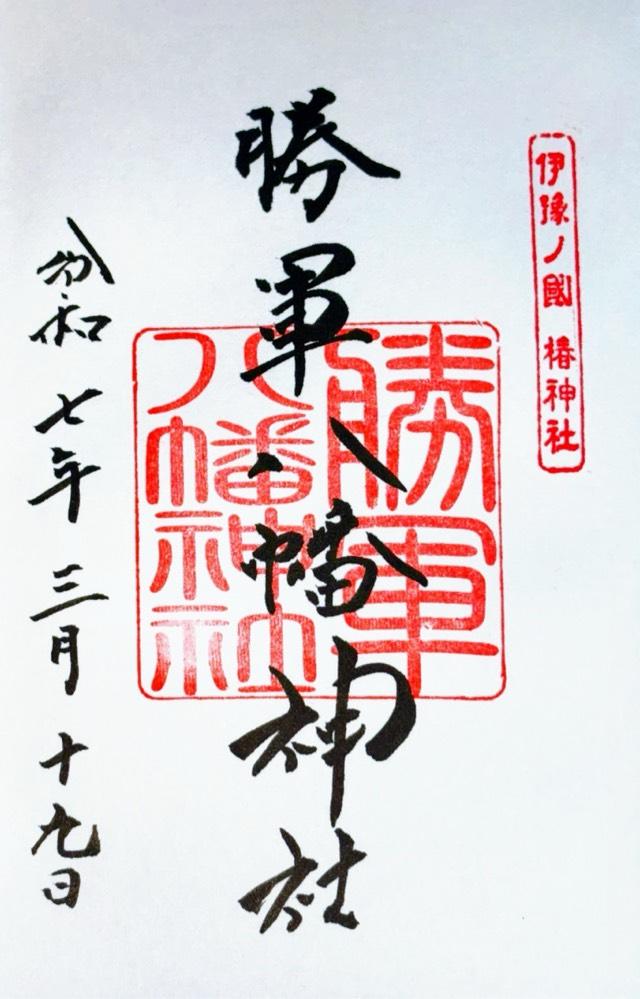 伊豫ノ國 椿神社
勝軍八幡神社
勝軍
八幡神社
令和七年三月十九日